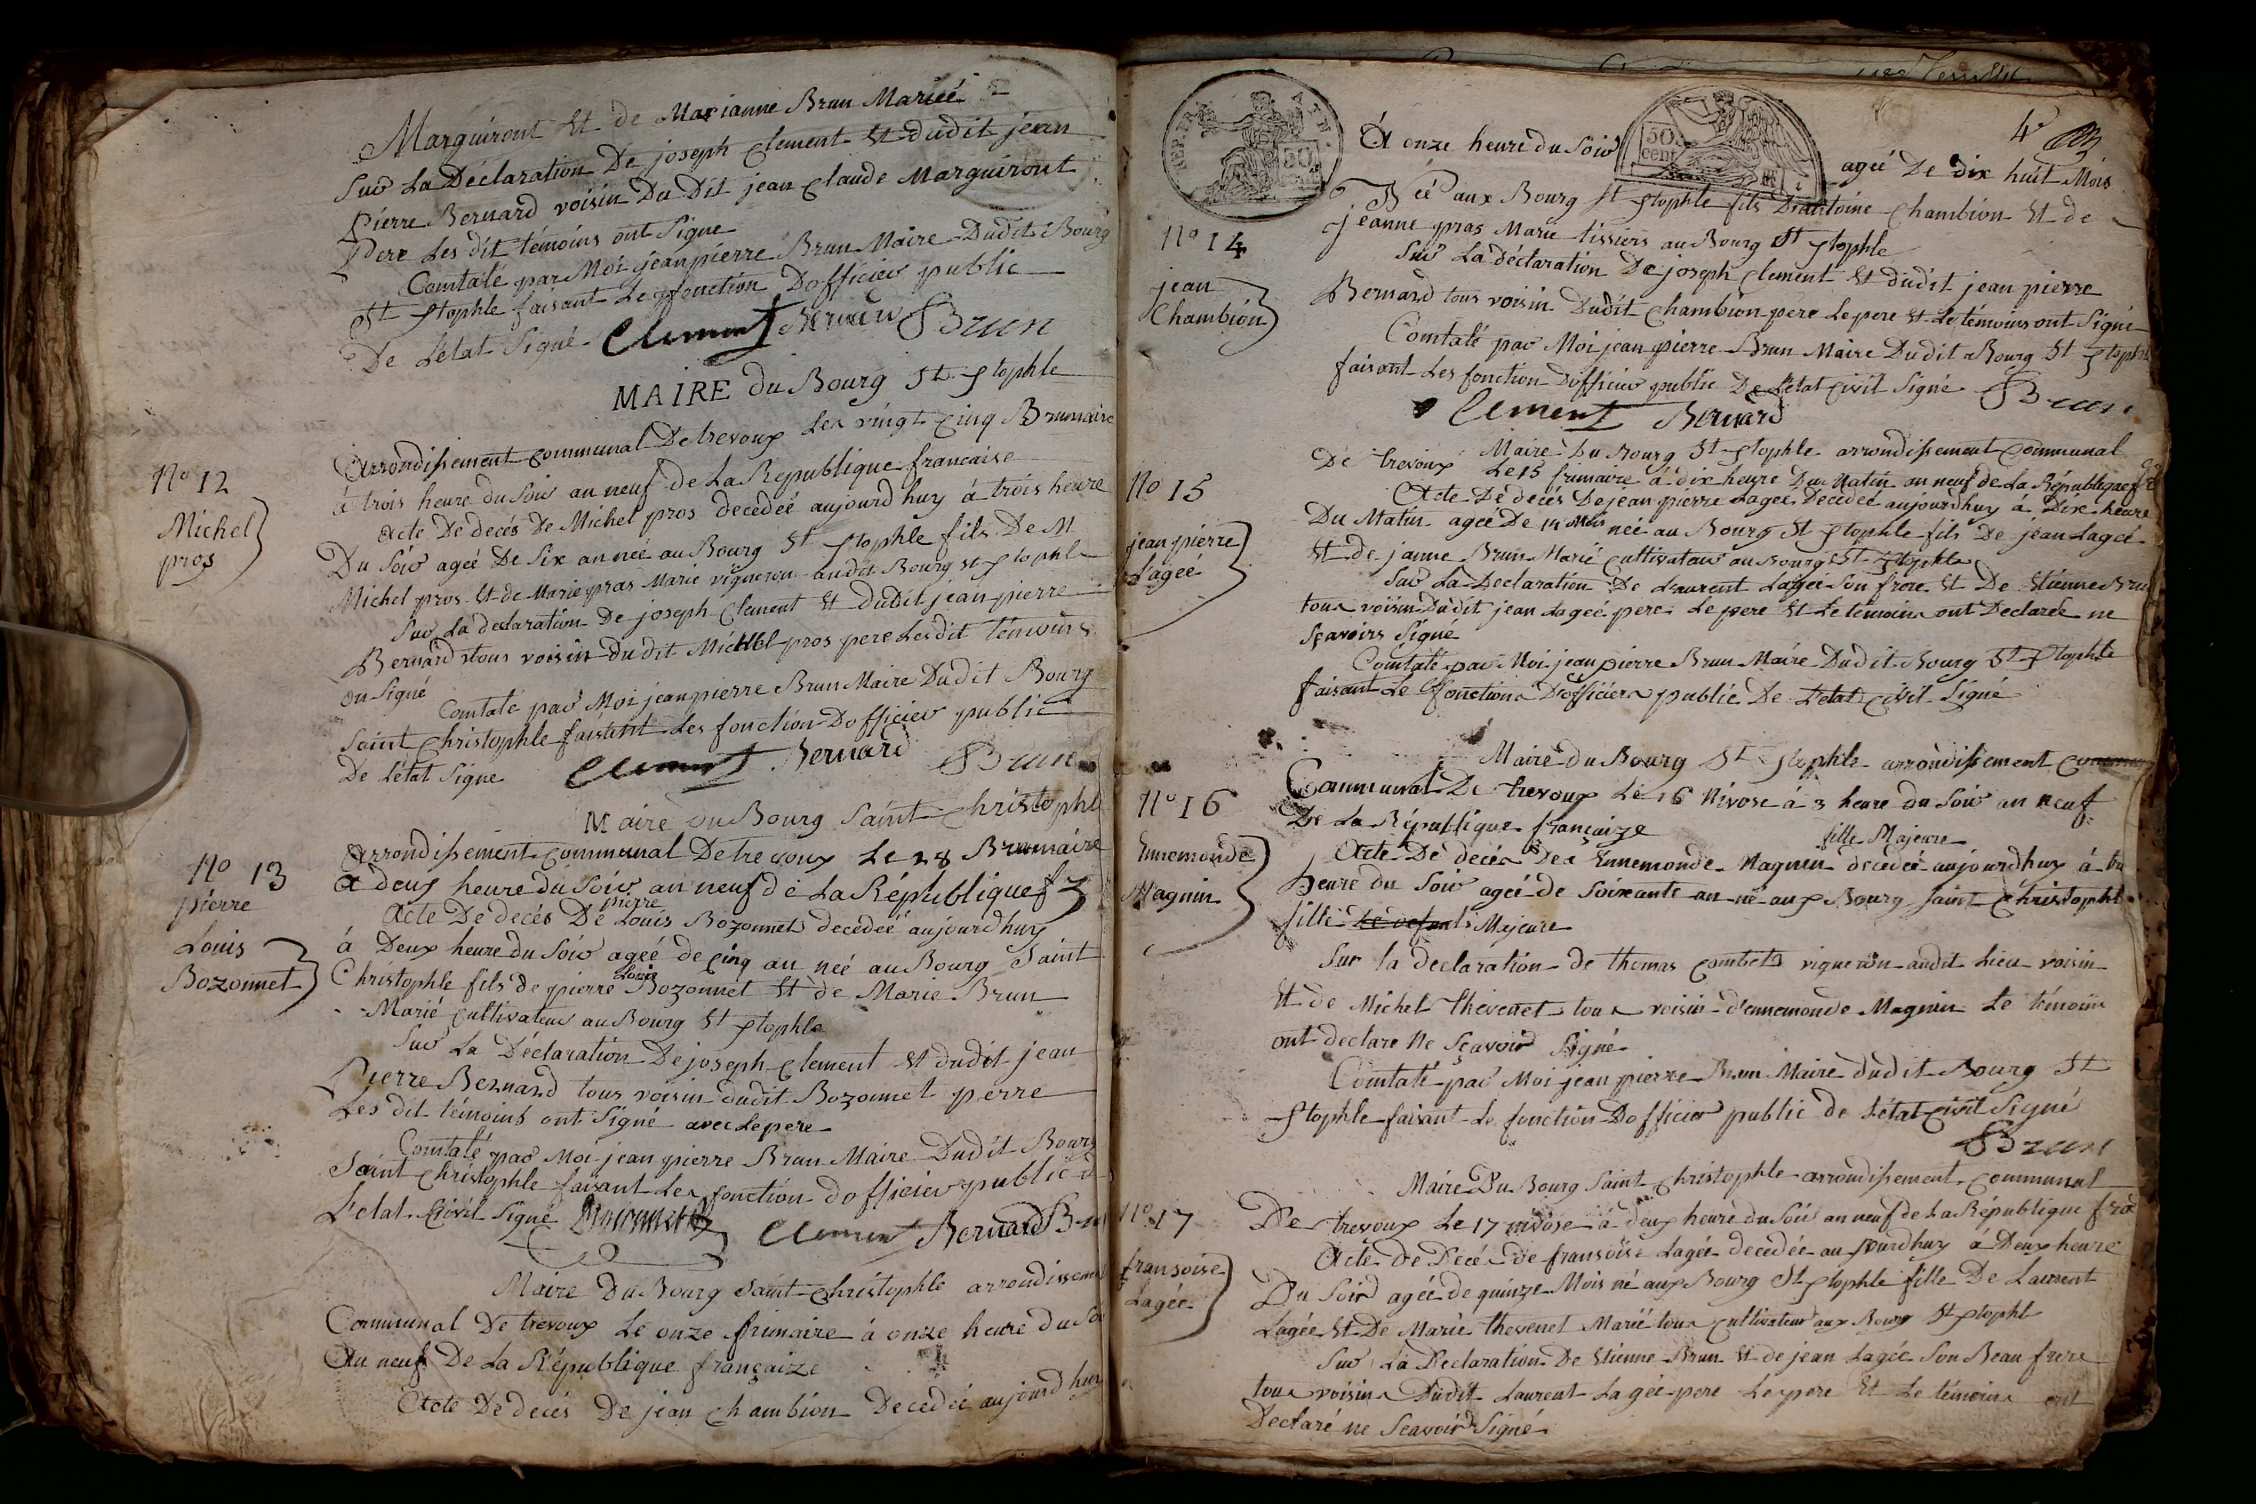 Marguiront Et de Marianne Brun Mariéé
Sur La Déclaration De joseph Clement Et dudit jean
Pierre Bernard voisin Du Dit jean Claude Marguiront
Pere Les dit témoins ont Signe
Contaté par Moi jean pierre Brun Maire Dudit Bourg
St Stophle faisant Les fonction Dofficier public
De Létat Signé Clement Bernard Brun
MAIRE du Bourg St Stophle
Arrondissement communal De trevoux Les vingt Cinq Brumaire
à trois heure du Soir an neuf de La Republique francaise
No 12
Michel
pros
Acte De decés De Michel pros decedéé aujourdhuy à trois heure
Du Soir ageé De Six an néé au Bourg St Stophle fils De M
Michel pros Et de Marie pras Marié vigneron audit Bourg St Stophle
Sur La declaration De joseph Clement Et dudit jean pierre
Bernard tous voisin du dit Michel pros pere Lesdit témoins
on Signé
Contaté par Moi jean pierre Brun Maire Dudit Bourg
Saint Christophle faisant Les fonction Dofficier public
De Létat Signe Clement Bernard Brun
Maire du Bourg Saint Christophle
Arrondissement communal De trevoux Le 28 Brumaire
No 13
pierre
Louis
Bozonnet
à deux heure du Soir an neuf de La République f
pierre
Acte De decés De Louis Bozonnet decedéé aujourdhuy
à Deux heure du Soir ageé de cinq an neé au Bourg Saint
Louis
Christophle fils de pierre Bozonnet Et de Marie Brun
Marié Cultivateur au Bourg St Stophle
Sur La Déclaration De joseph Clement Et dudit jean
Pierre Bernard tous voisin dudit Bozonnet perre
Les dit témoins ont Signé avec Le pere
Contaté par Moi jean pierre Brun Maire Dudit Bourg
Saint Christophle faisant Les fonction dofficier public d
Letat Civil Signé Clement Bernard Brun
Maire Du Bourg Saint Christophle arrondissement
Communal De trevoux Le onze frimaire à onze heure du So
An neuf De La République françaize
Acte De decés De jean Chambion Decedéé aujourdhuy
4e
A onze heure du Soir ageé De dix huit Mois
50 cent
REP. FRA
Néé aux Bourg St Stophle fils Dantoine Chambion Et de
jeanne pras Marié tissiers au Bourg St Stophle
No 14
jean
Chambion
Sur La déclaration De joseph Clement Et dudit jean pierre
Bernard tous voisin Dudit Chambion pere Le pere Et Le témoins ont Signé
Contaté par Moi jean pierre Brun Maire Dudit Bourg St Stophle
faisant Les fonction Dofficier public De Létat Civil Signé Brun
Clement Bernard
Maire Du Bourg St Stophle arrondissement Communal
De trevoux Le 15 frimaire à dix heure Du Matin an neuf de La République
No 15
jean pierre
Lageé
Acte De decés De jean pierre Lageé Decedéé aujourdhuy à Dix heure
Du Matin ageé De 14 Mois neé au Bourg St Stophle fils De jean Lageé
Et de janne Brun Marié Cultivateur au Bourg St Stophle
Sur La Declaration De Laurent Lageé Son frere Et De Etienne Brun
tous voisin Dudit jean Lageé pere Le pere Et Le témoins ont Declaré ne
Scavoirs Signé
Contaté par Moi jean pierre Brun Maire Dudit Bourg St Stophle
faisant Le fonctions Dofficiers public De Letat Civil Signé
Maire du Bourg St Stophle arrondissement
Communal De trevoux Le 16 Nivose à 3 heure du Soir an neuf
De La République françaize
No 16
Ennemonde
Magnin
fille Majeure
Acte De decés De Ennemonde Magnin decedéé aujourdhuy à
heure du Soir ageé de Soixante an né aux Bourg Saint Christophle
fille Majeure
Sur la declaration de thomas Combet vigneron audit Lieu voisin
Et de Michel thevenet tous voisin d'ennemonde Magnin Le témoin
ont declare ne Scavoir Signé
Contaté par Moi jean pierre Brun Maire dudit Bourg St
Stophle faisant Le fonction Dofficier public de Létat Civil Signé
Brun
Maire Du Bourg Saint Christophle arrondissement Communal
No 17
fransoise
Lageé
De trevoux Le 17 nivose à deux heure du Soir an neuf de La République
Acte de Decés de fransoise Lageé decedéé aujourdhuy à Deux heure
Du Soir ageé de quinze Mois né aux Bourg St Stophle fille De Laurent
Lageé Et De Marie thevenet Marié tous Cultivateur aux Bourg St Stophle
Sur La Declaration De Etienne Brun Et de jean Lageé Son Beau frere
tous voisins Dudit Laurent Lageé pere Le pere Et Le témoins ont
Declaré ne Scavoir Signé